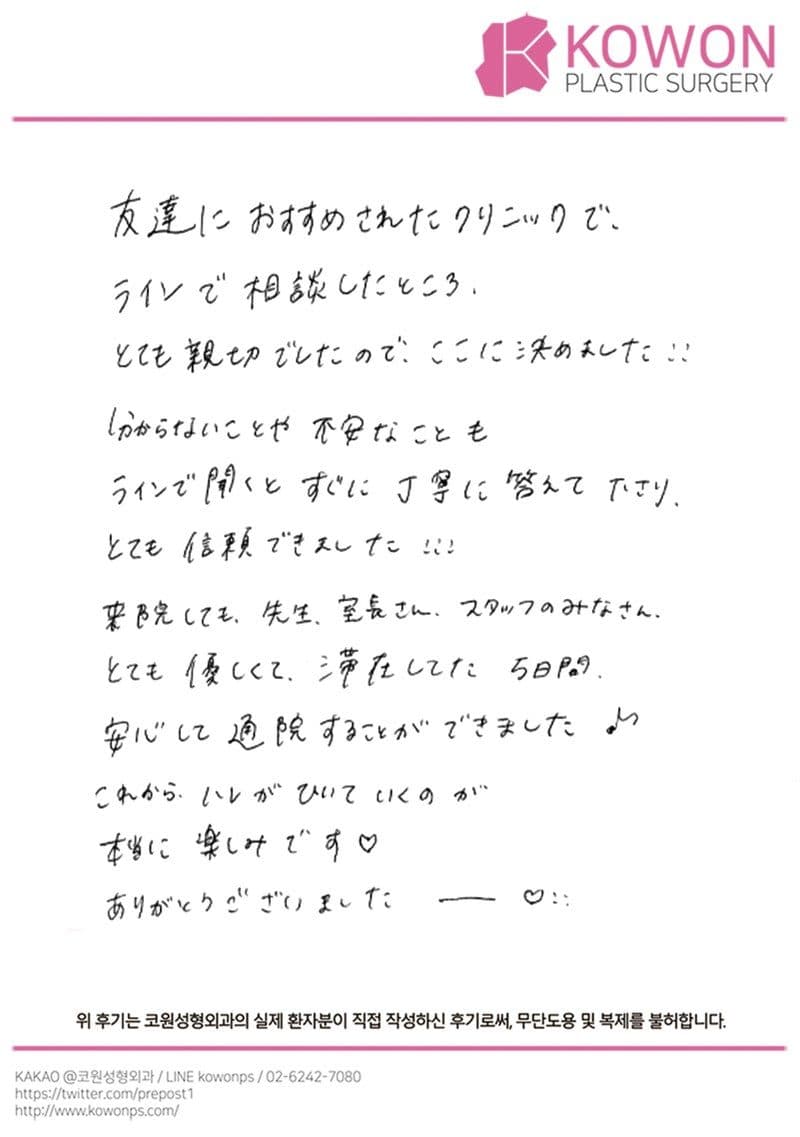 KOWON
PLASTIC SURGERY
友達に おすすめされたクリニックで、
ラインで 相談したところ、
とても 親切でしたので、ここに決めました!!
分からないことや 不安なことも
ラインで 聞くと すぐに 丁寧に 答えて下さり、
とても 信頼できました!!!
来院しても、先生、室長さん、スタッフのみなさん、
とても 優しくて、滞在してた 5日間、
安心して 通院することが できました♪
これから、ハレが ひいて いくのが
本当に 楽しみです♡
ありがとうございました ー ♡!!
위 후기는 코원성형외과의 실제 환자분이 직접 작성하신 후기로써, 무단도용 및 복제를 불허합니다.
KAKAO @코원성형외과 / LINE kowonps / 02-6242-7080
https://twitter.com/prepost1
http://www.kowonps.com/